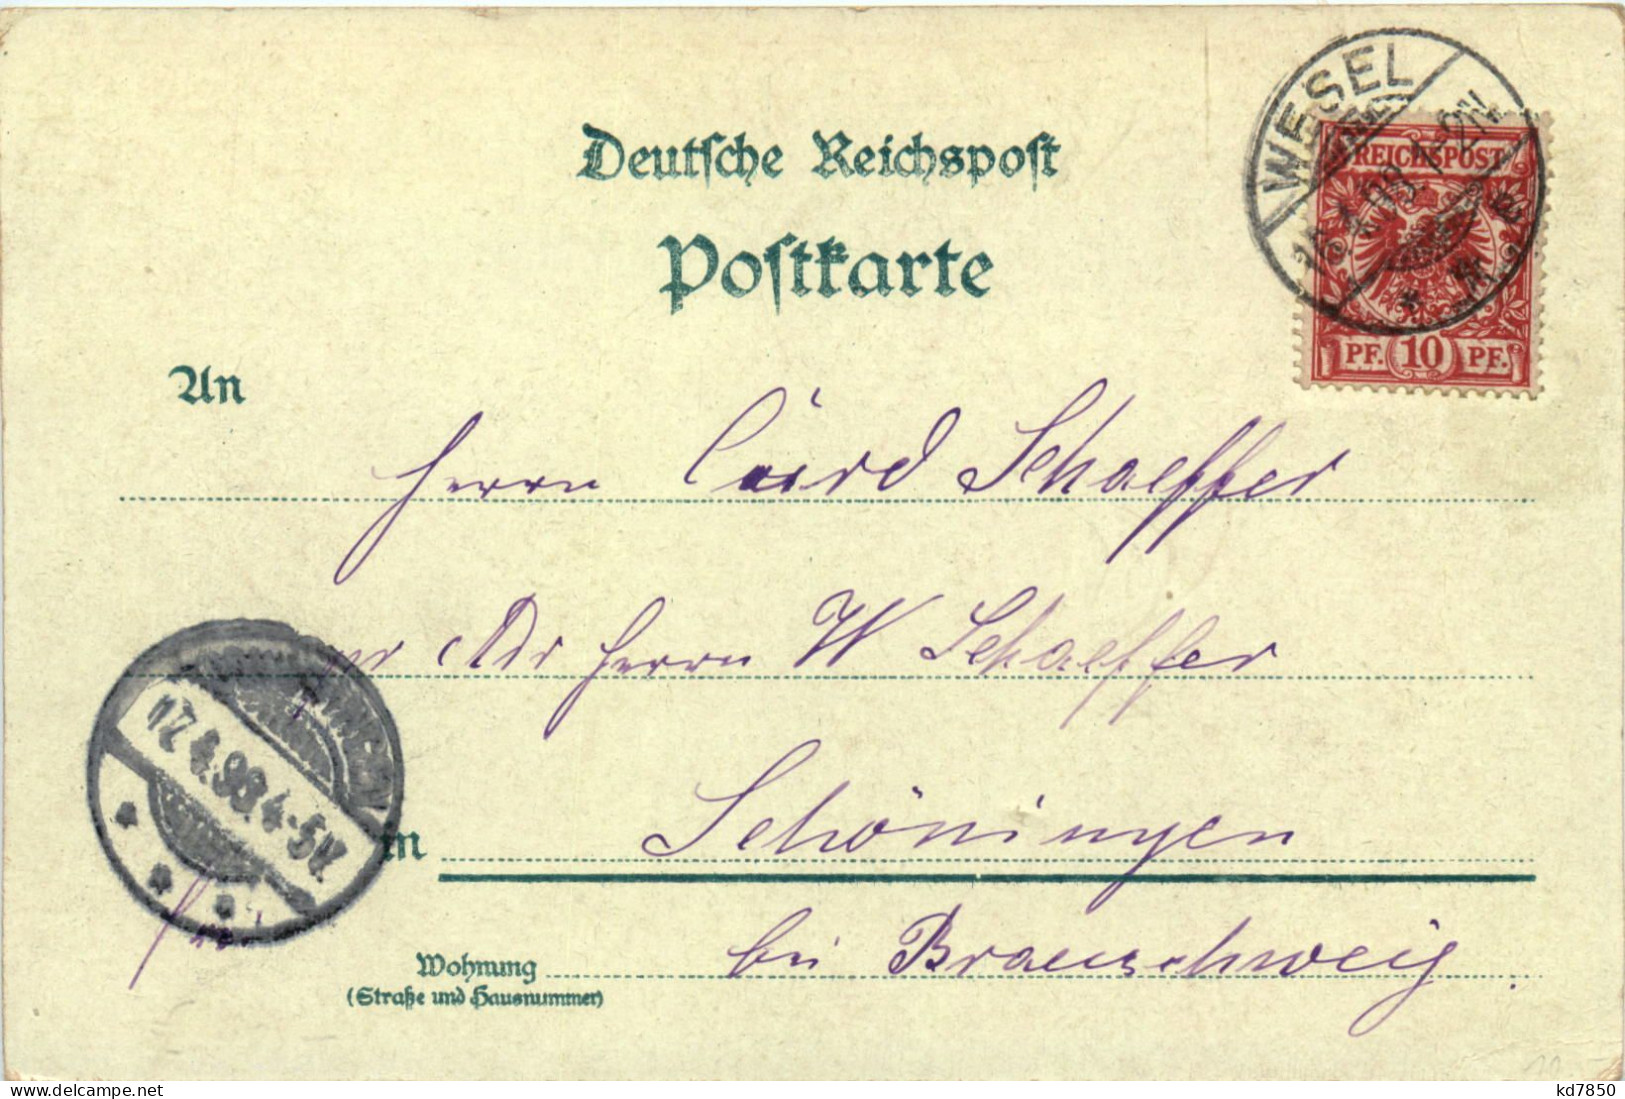 Deutsche Reichspost
Postkarte
WESEL
REICHSPOST
PF. 10 PF.
An
Herrn Cürd Schaeffer
pr Adr Herrn W Schaeffer
17.4.98.4-5V.
in Schöningen
bei Braunschweig.
Wohnung
(Straße und Hausnummer)
www.delcampe.net
kd7850